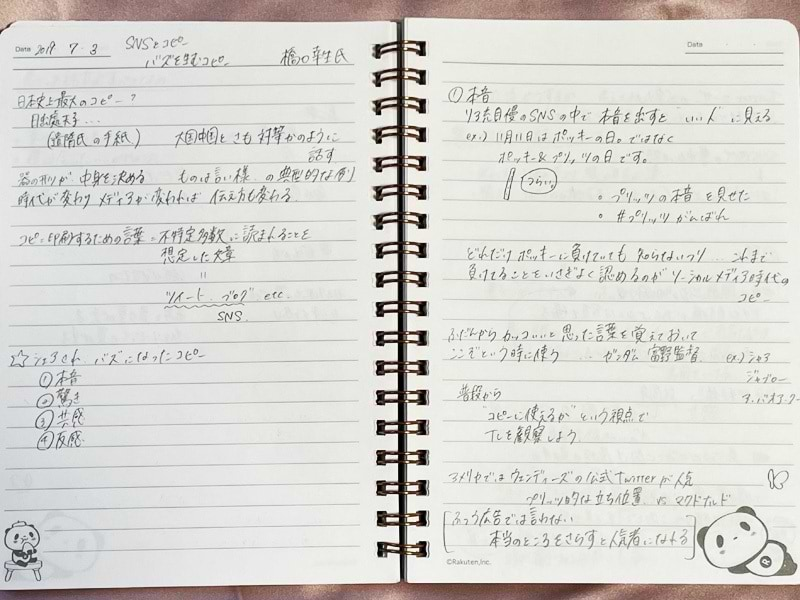 Date 2019 7 3
SNSとコピー
バズを生むコピー 橋口幸生氏
日本史上最大のコピー?
日出處天子…
(遣隋氏の手紙) 大国中国とさも対等かのように
話す
器の形が中身を決める ものは言い様の典型的な例
時代が変わりメディアが変われば伝え方も変わる
コピー=印刷するための言葉=不特定多数に読まれることを
想定した文章
〃
"ツイート、ブログ" etc
SNS.
☆シェアされ バズになったコピー
①本音
②驚き
③共感
④反感
Date
①本音
リア充自慢のSNSの中で本音を出すと"いい人"に見える
ex.) 11月11日はポッキーの日。ではなく
ポッキー&プリッツの日です。
つらい。
・プリッツの本音を見せた
・#プリッツがんばれ
どれだけポッキーに負けていても知らないフリ…これまで
負けてることをいさぎよく認めるのがソーシャルメディア時代の
コピー
ふだんからカッコいいと思った言葉を覚えておいて
ここぞという時に使う … ガンダム富野監督. ex.)シャア
ジャブロー
ア・バオア・クー
普段から
"コピーに使えるか"という視点で
TLを観察しよう
アメリカではウェンディーズの公式Twitterが人気
プリッツ的な立ち位置 vs マクドナルド
ふつう広告では言わない
本当のところをさらすと人気者になれる
©Rakuten,Inc.
R